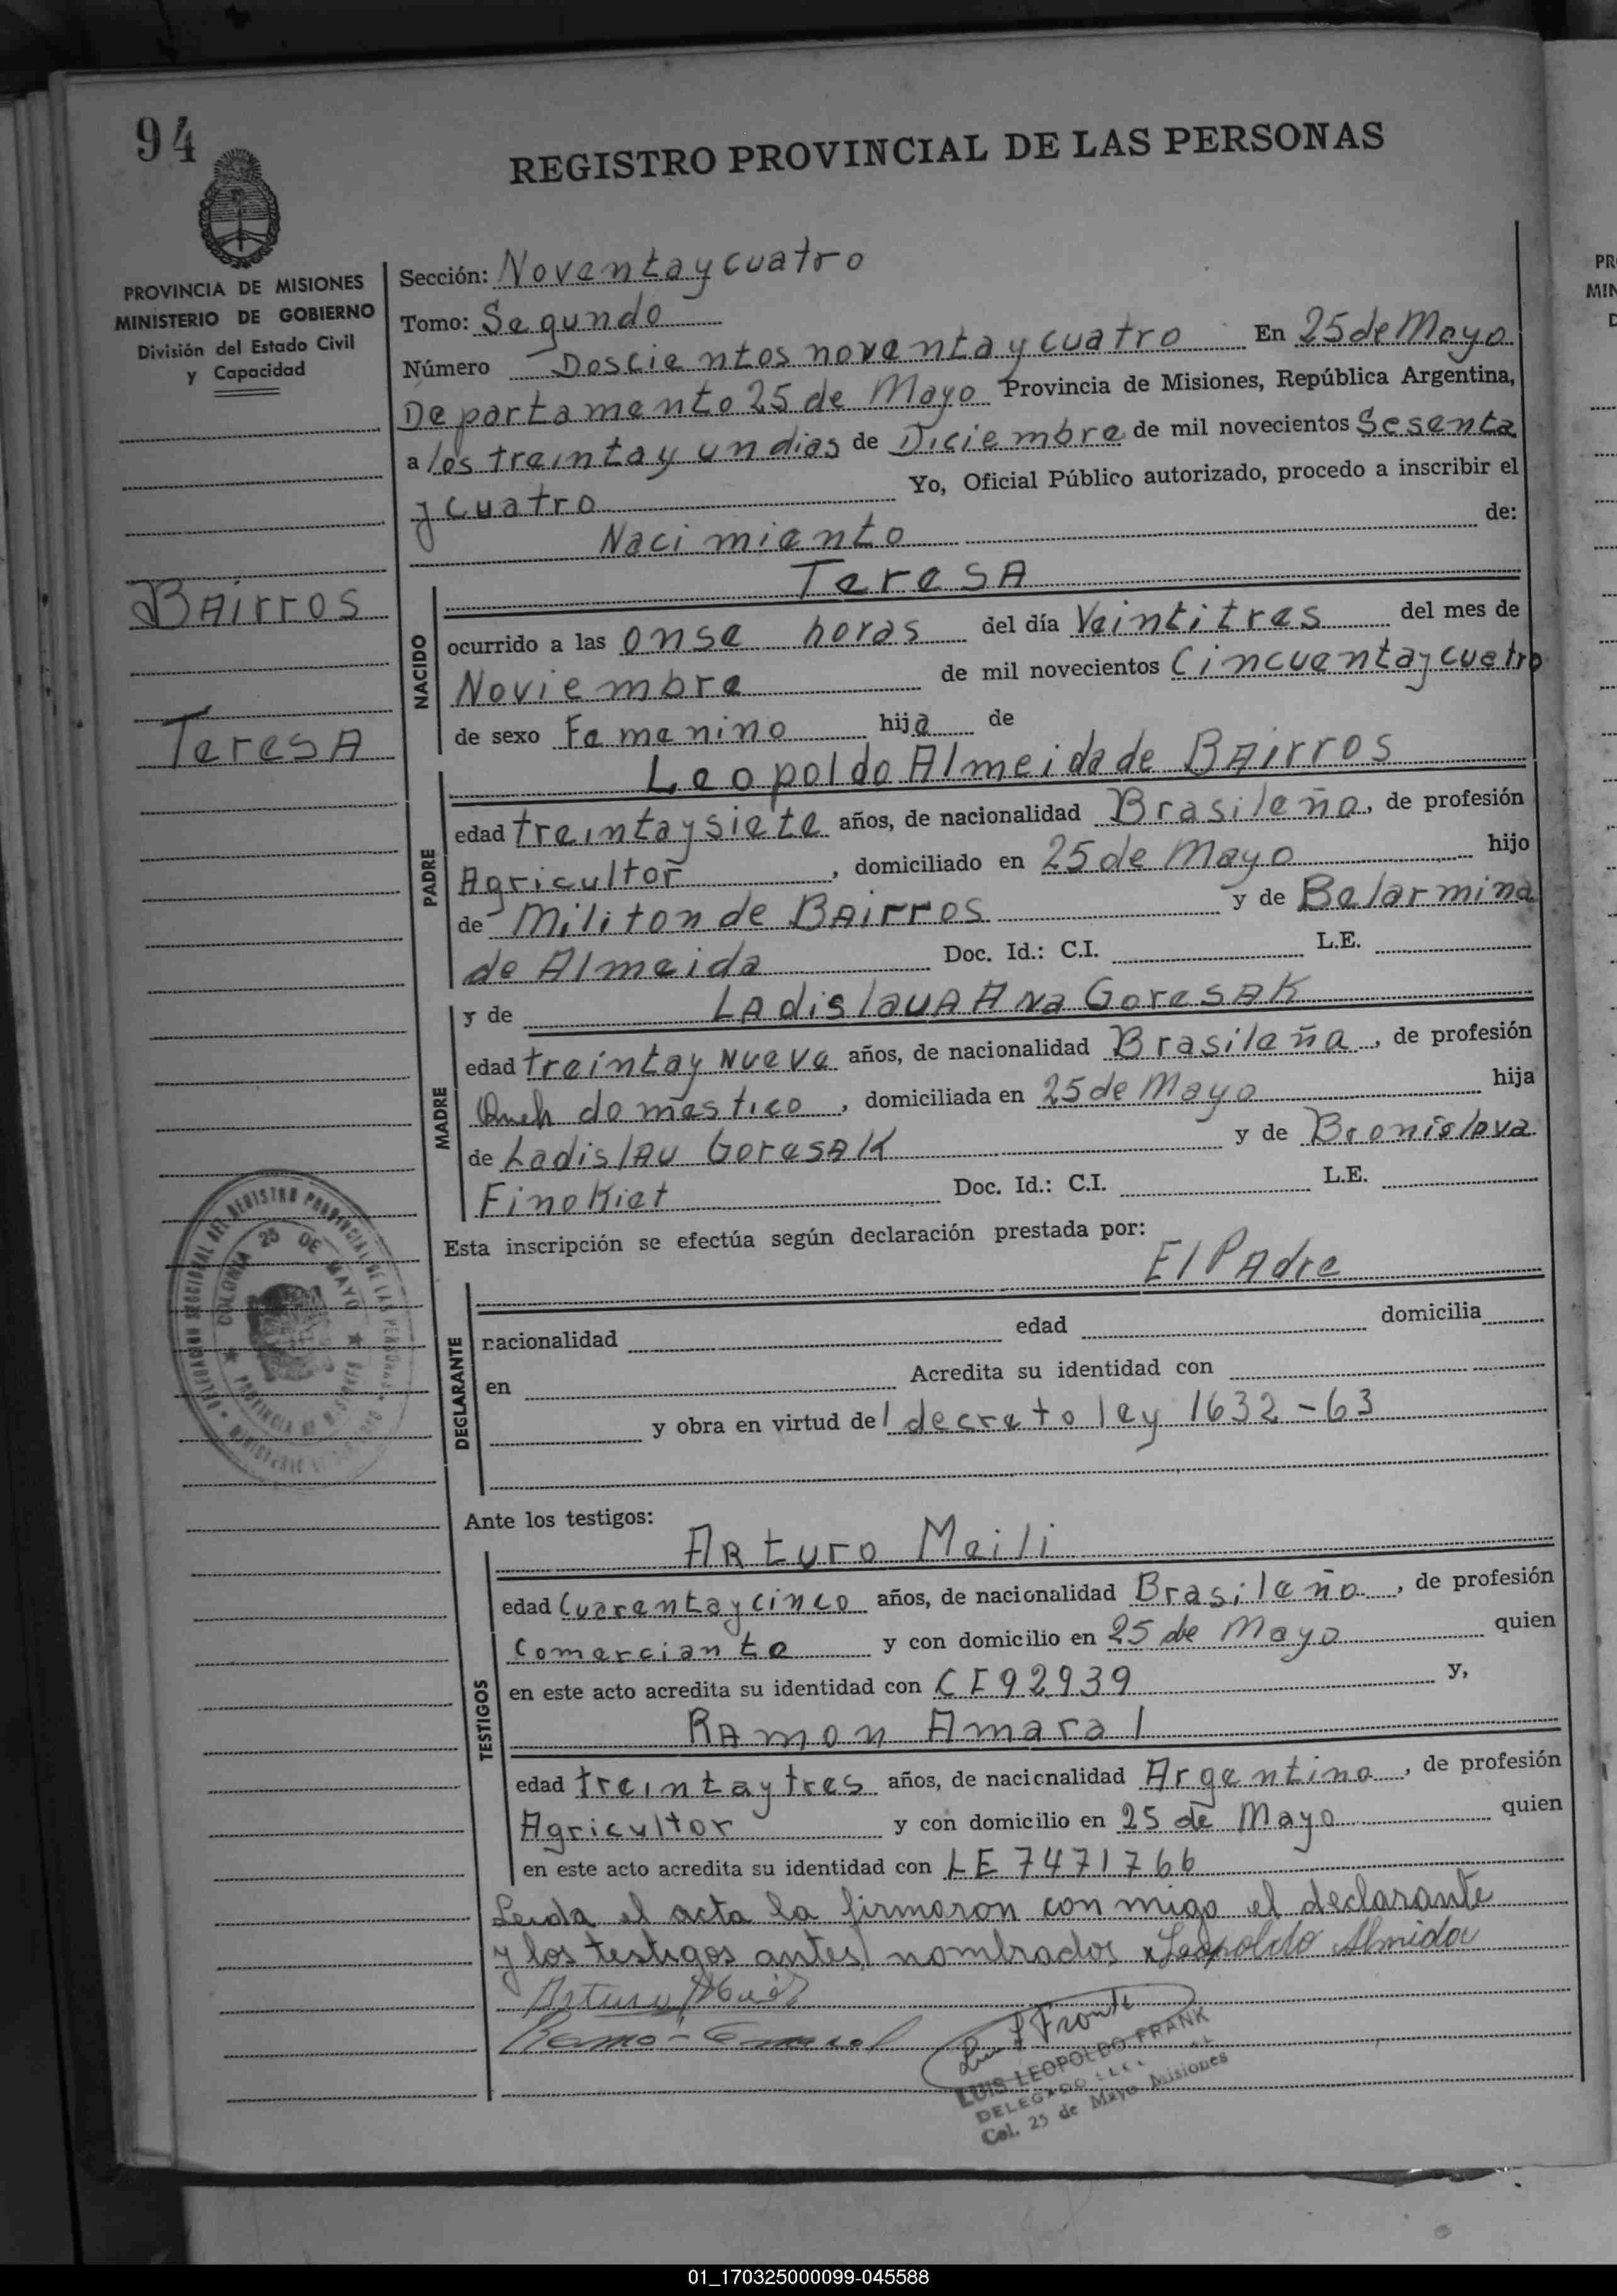 94
REGISTRO PROVINCIAL DE LAS PERSONAS
PROVINCIA DE MISIONES
MINISTERIO DE GOBIERNO
División del Estado Civil
y Capacidad
Bairros
Teresa
Sección: Noventa y cuatro
Tomo: Segundo
Número Doscientos noventa y cuatro En 25 de Mayo
Departamento 25 de Mayo Provincia de Misiones, República Argentina,
a los treinta y un dias de Diciembre de mil novecientos Sesenta
y cuatro Yo, Oficial Público autorizado, procedo a inscribir el
Nacimiento de:
NACIDO
Teresa
ocurrido a las onse horas del día Veintitres del mes de
Noviembre de mil novecientos Cincuenta y cuatro
de sexo Femenino hija de
PADRE
Leopoldo Almeida de Bairros
edad treinta y siete años, de nacionalidad Brasileña, de profesión
Agricultor, domiciliado en 25 de Mayo hijo
de Militon de Bairros y de Belarmina
de Almeida Doc. Id.: C.I. L.E.
MADRE
y de Ladislaua Ana Goresak
edad treinta y Nueve años, de nacionalidad Brasileña, de profesión
domestico, domiciliada en 25 de Mayo hija
de Ladislau Goresak y de Bronislava
Finokiet Doc. Id.: C.I. L.E.
Esta inscripción se efectúa según declaración prestada por:
DECLARANTE
El Padre
nacionalidad edad domicilia
en Acredita su identidad con
y obra en virtud del decreto ley 1632-63
DELEGACION SECCIONAL DEL REGISTRO PROVINCIAL DE LAS PERSONAS
COLONIA 25 DE MAYO
PROVINCIA DE MISIONES
Ante los testigos:
TESTIGOS
Arturo Meili
edad Cuarenta y cinco años, de nacionalidad Brasileño, de profesión
Comerciante y con domicilio en 25 de Mayo quien
en este acto acredita su identidad con CI 92939 y,
Ramon Amaral
edad treinta y tres años, de nacionalidad Argentino, de profesión
Agricultor y con domicilio en 25 de Mayo quien
en este acto acredita su identidad con LE 7471766
Leida el acta la firmaron con migo el declarante
y los testigos antes nombrados x Leopoldo Almida
Arturo
LUIS LEOPOLDO FRANK
DELEGADO
Col. 25 de Mayo Misiones
01_170325000099-045588